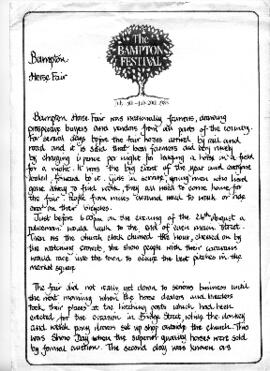 The
BAMPTON
FESTIVAL
Bampton
Horse Fair
Bampton Horse Fair was nationally famous, drawing
prospective buyers and vendors from all parts of the country.
For several days before the fair horses arrived by rail and
road and it is said that local farmers did very nicely
by charging six pence per night for keeping a horse in a field
for a night. It was the big event of the year and everyone
looked forward to it. Girls in service, young men who had
gone away to find work, they all tried to come home for
the fair. People from miles around used to walk or ride
over on their bicycles.
Just before 6.00pm on the evening of the 26th August a
policeman would walk to the end of each main street.
Then as the church clock chimed the hour, cheered on by
the watching crowds, the show people with their caravans
would race into the town to occupy the best pitches in the
market square.
The fair did not really get down to serious business until
the next morning when the horse dealers and traders
took their places at the hitching rails which had been
erected for the occasion in Bridge Street, while the donkey
and welsh pony dealers set up shop outside the church. This
was Show Day when the superior quality horses were sold
by formal auction. The second day was known as